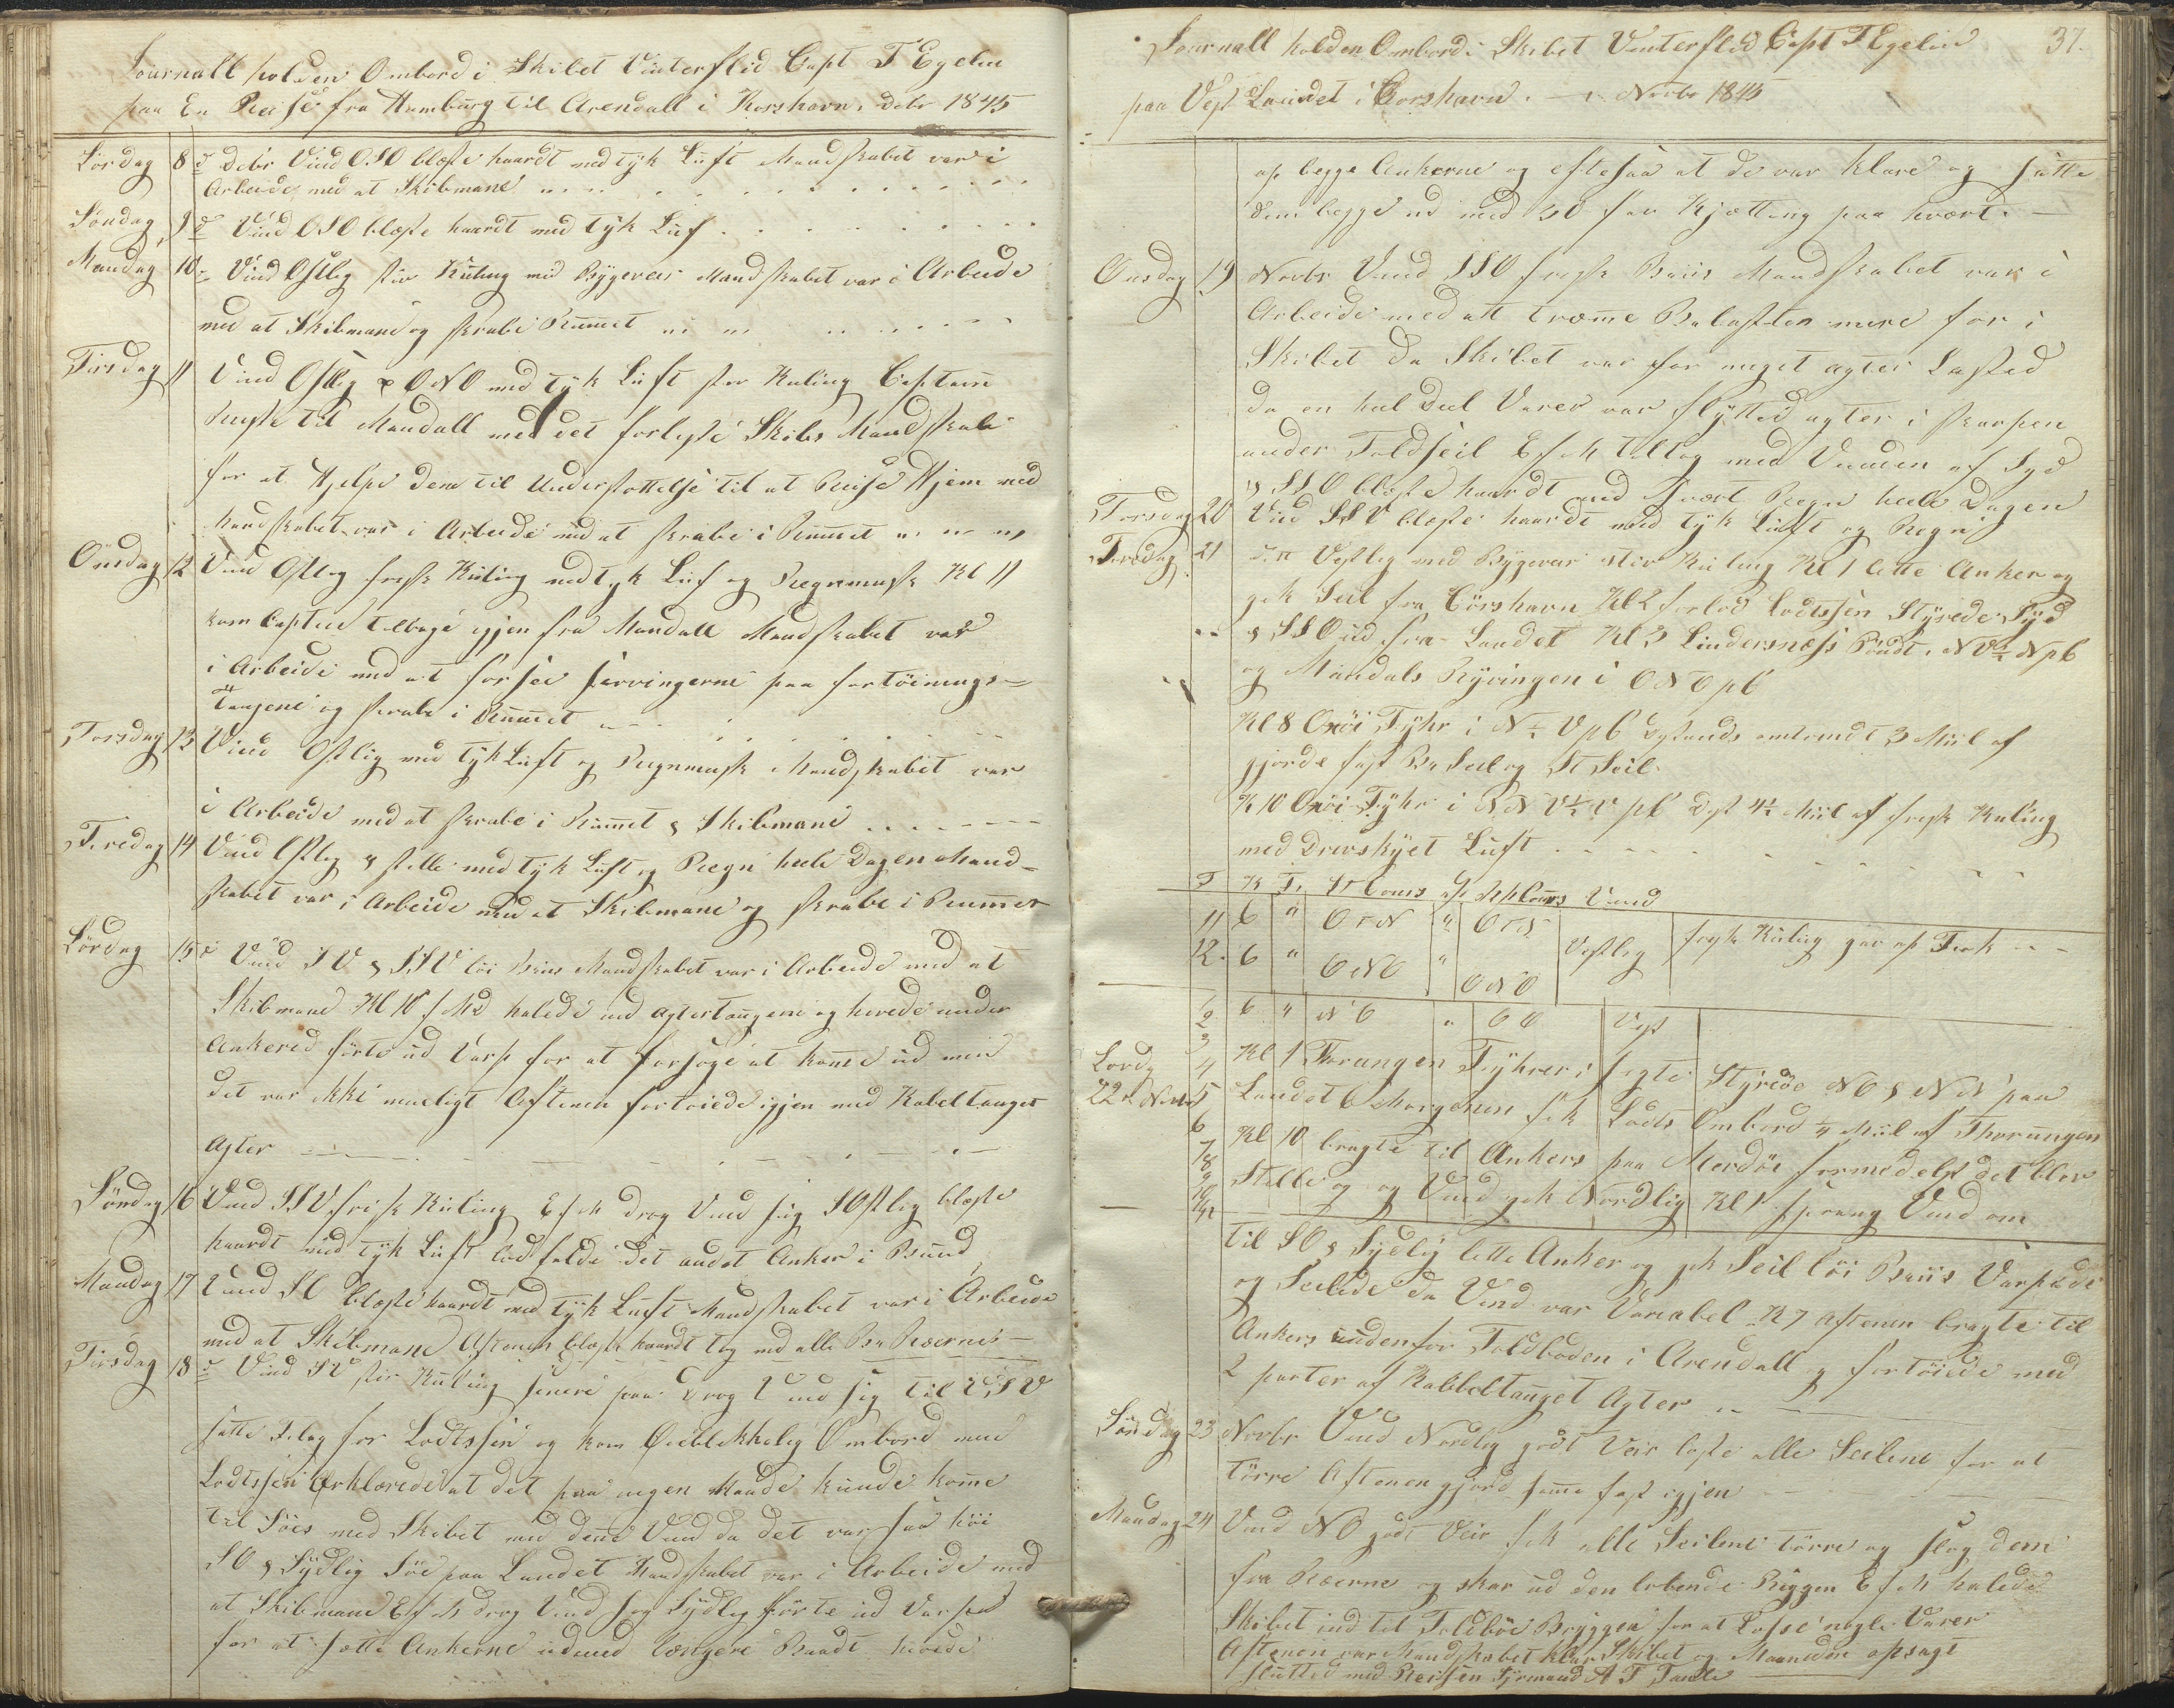 Journall holden Ombord i Skibet Vinterflid Capt T Egelin
paa En Reise fra Hamburg til Arendall i Korshavn. Debr 1845
Lördag 8 d Debr Vind OSO blæste haardt med tyk Luft Mandskabet var i
Arbeide med at Skibmane
Söndag 9 d Vind OSO blæste haardt med tyk Luf
Mandag 10 Vind Ostlig stiv Kuling med Bÿgeveir Mandskabet var i Arbeide
med at Skibmane og skrabe Rummet
Tirsdag 11 Vind Ostlig & ONO med tyk Luft stiv Kuling Captain
Reiste til Mandall med det forliste Skibs Mandskab
for at Hjelpe dem til Understottelse til at Reise Hjem med
Mandskabet var i Arbeide med at skrabe i Rummet
Onsdag 12 Vind Ostlig frisk Kuling med tyk Luf og Regn Kl 11
kom Captein tilbage igjen fra Mandall Mandskabet var
i Arbeide med at forsee servingerne paa fortöinings=
Tougene og skrabe i Rummet
Torsdag 13 Vind Ostlig med tyk Luft og Mandskabet var
i Arbeide med at skrabe i Rummet & Skibmane
Fredag 14 Vind Ostlig & stille med tyk Luft og Regn heele Dagen Mand=
skabet var i Arbeide med at Skibmane og skrabe i Rummet
Lördag 15 d Vind SV & SSV löi Briis Mandskabet var i Arbeide med at
Skibmane Kl 10 f Md halede ind agtertougene og hivede under
Ankered förte ud Varp for at forsöge at komme ud men
det var ikke mueligt Aftenen fortöiede igjen med Kabeltouget
Agter
Söndag 16 Vind SSV frisk Kuling E f M drog Vind sig SOstlig blæste
haardt med tyk Luft lod falde det andet Anker i Bund
Mandag 17 Vind SO blæste haardt med tyk Luft Mandskabet var i Arbeide
med at Skibmane Aftenen blæste haardt tog ned alle Bra Ræerne
Tirsdag 18 d Vind SV stiv Kuling senere paa drog Vind sig til VSV
satte Flag for Lodtssen og kom Öieblikkelig Ombord men
Lodtssen erklærede at det paa ingen Maade kunde komme
til Söes med Skibet med denne Vind da det var saa höi
SO & Sÿdlig Söe paa Landet Mandskabet var i Arbeide med
at Skibmane E f M drog Vind sig Sÿdlig förte ud Varped
for at sætte Ankerne udmed længere Bredt hivede
Journall holden Ombord i Skibet Vinterflid Capt T Egelin 37.
paa Vest Landet i Corshavn. Novbr 1845
op begge Ankerne og eftesaa at de var klare og satte
dem begge ud med 30 fav Kjætting paa hvært.
Onsdag 19 Novbr Vind SSO frisk Briis Mandskabet var i
Arbeide med att træmme Balasten mere for i
Skibet da Skibet var for meget agter Lasted
da en heel Deel Varer var flÿtted agter i skarpen
under Toldseil E f M tiltog med Vinden af Syd
& SSO blæste haardt med svært Regn heele Dagen
Torsdag 20 Vind SSV blæste haardt med tÿk Luft og Regn
Fredag 21 Vestlig med Bÿgeveir stiv Kuling Kl 1 lette Anker og
gik Seil fra Corshavn Kl 2 forlod Lodtssen Stÿrede Sÿd
& SSO ud fra Landet Kl 3 Lindersnæss Pöndt. NV½N pC
og Mandals Rÿvingen i ONO pC
Kl 8 Oxöi Fÿhr i N½V pC Distands omtrendt 3 Miil af
gjorde fast Bra Seil og St Seil
K 10 Oxöi Fÿhr i NNV½V pC Dist 4½ Miil af frisk Kuling
med Drevskÿet Luft
T K F St Cours af Beh Cours Vind
11 6 " OtN " OtN frisk Kuling gav op Fock
12. 6 " ONO " ONO Vestlig
2 6 " NO " OO Vest
3
4 Kl 1 Torungen Fÿhrer i sigte Stÿrede NO & NN paa
Lördg
22 Novbr 5 Landet C Morgenen fik Lodts Ombord ¼ Miil af Thorungen
6
7 Kl 10 bragte til Ankers paa Merdöe formedelst det blev
8
9 Stille og og Vind gik Nordlig Kl 1 sprang Vind om
10
til SO & Sÿdlig lette Anker og gik Seil löi Briis Varpede
og Seilede da Vind var Variabel K 7 Aftenen bragte til
Ankers uddenfor Toldboden i Arendall og fortöiede med
2 parter af Kabbeltouget Agter
Söndag 23 Novbr Vind Nordlig godt Veir löste alle Seilene for at
törre Aftenen gjord samme fast igjen
Mandag 24 Vind NO godt Veir fik alle Seilene törre og slog dem
fra Ræerne og skar ud den lobende Riggen E f M halede
Skibet ind til Toldböe Brÿggen for at Losse nogle Varer
Aftenen var Mandskabet klar Skibet og Maaneden opsagt
sluttet med Reissen Sÿrmand A T